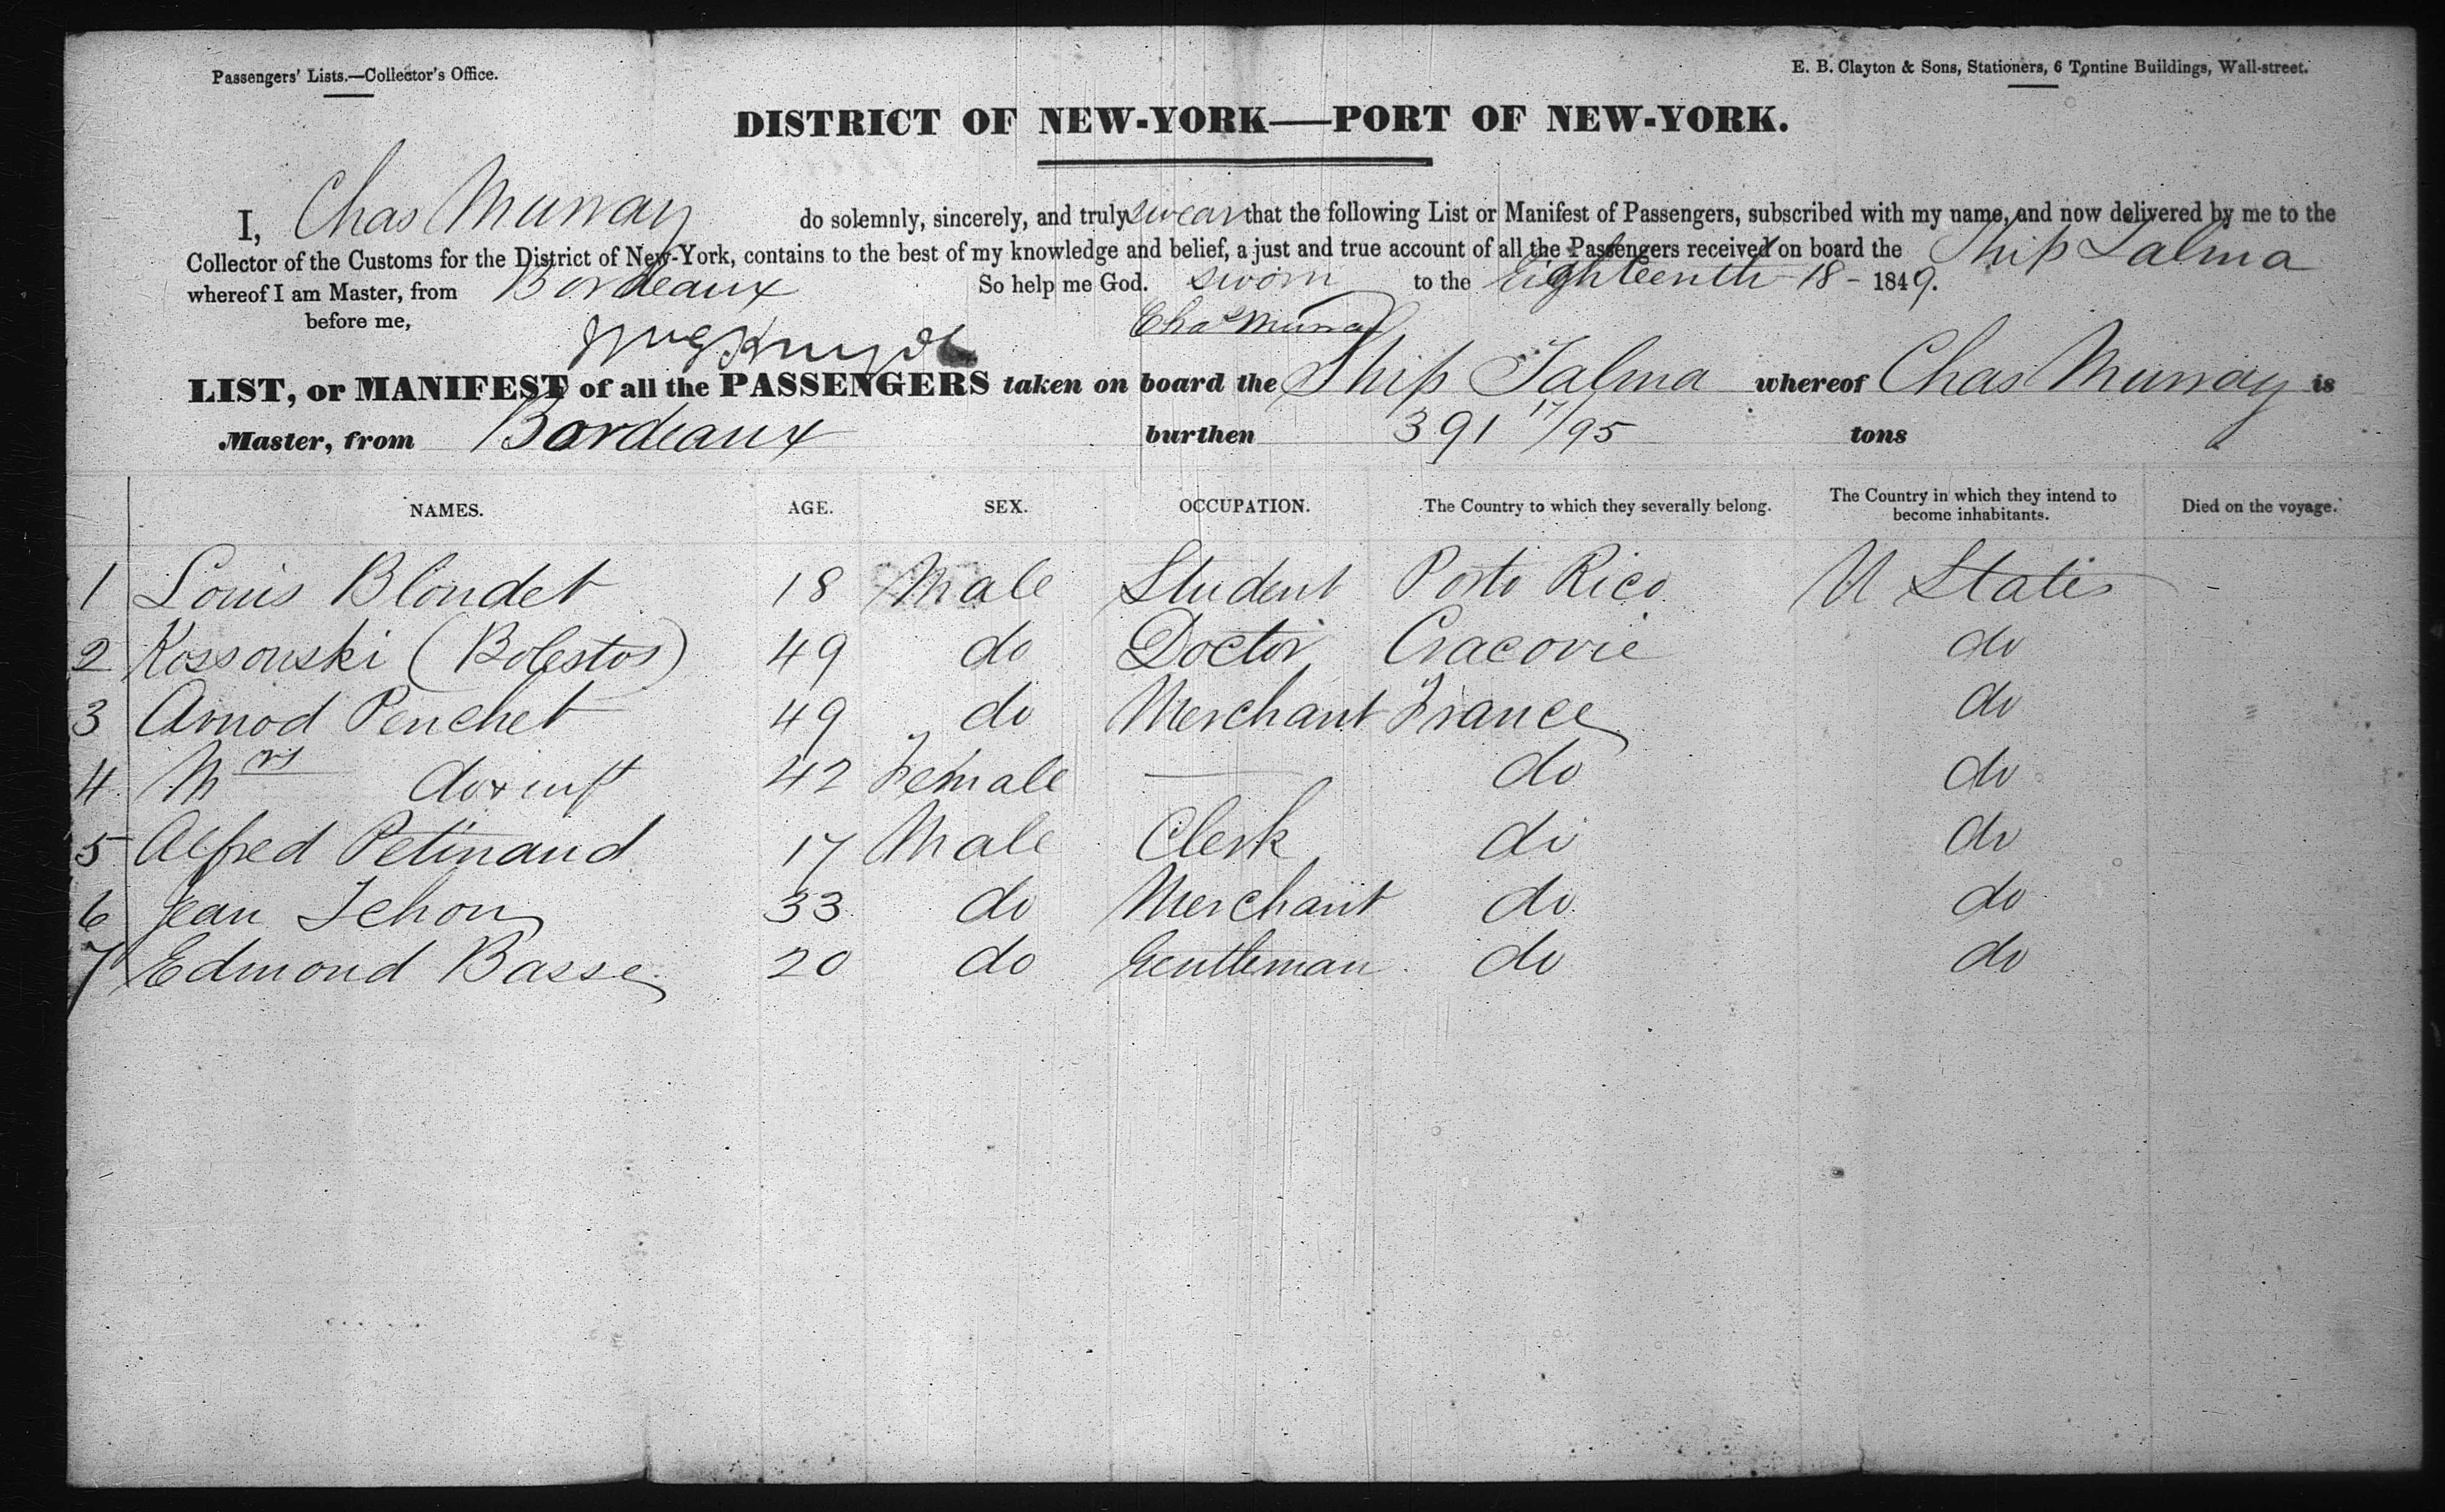 Passengers' Lists.—Collector's Office.
E. B. Clayton & Sons, Stationers, 6 Tontine Buildings, Wall-street.
DISTRICT OF NEW-YORK—PORT OF NEW-YORK.
I, Chas Murray do solemnly, sincerely, and truly swear that the following List or Manifest of Passengers, subscribed with my name, and now delivered by me to the
Collector of the Customs for the District of New-York, contains to the best of my knowledge and belief, a just and true account of all the Passengers received on board the Ship Talma
whereof I am Master, from Bordeaux So help me God. Sworn to the Eighteenth 18 - 1849.
before me, Chas Murray
LIST, or MANIFEST of all the PASSENGERS taken on board the Ship Talma whereof Chas Murray is
Master, from Bordeaux burthen 391 17/95 tons
NAMES. AGE. SEX. OCCUPATION. The Country to which they severally belong. The Country in which they intend to become inhabitants. Died on the voyage.
1 Louis Blondet 18 Male Student Porto Rico U States -
2 Kossouski (Bolestos) 49 do Doctor Cracovie do
3 Arnod Penchet 49 do Merchant France do
4 Mrs do & inft 42 Female — do do
5 Alfred Petinaud 17 Male Clerk do do
6 Jean Tehon 33 do Merchant do do
7 Edmond Basse 20 do Gentleman do do